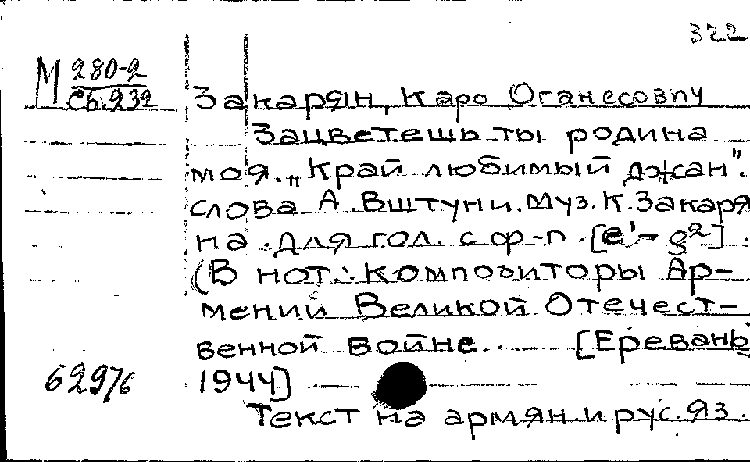 322
М 280-2
Сб. 932
Закарян, Каро Оганесовпч
Зацветешь ты родина
моя. „Край любимый джан".
слова А. Вштуни. Муз. К. Закаря
на. Для гол. с ф-п. [e'- g²].
(В нот.: Композиторы Ар-
мении Великой Отечест-
венной войне. [Ереван,
1944]
62976
Текст на армян. и рус. яз.